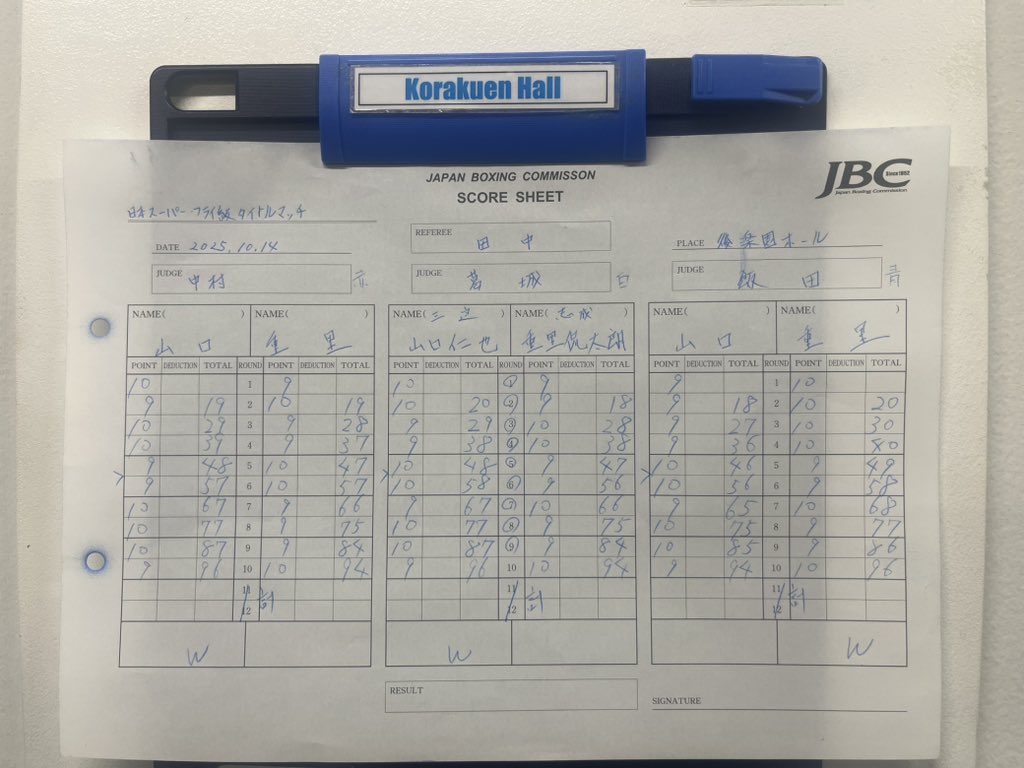 Korakuen Hall
JAPAN BOXING COMMISSON
SCORE SHEET
JBC Since1952
Japan Boxing Commission
日本スーパーフライ級タイトルマッチ
DATE 2025.10.14
REFEREE 田中
PLACE 後楽園ホール
JUDGE 中村 赤
JUDGE 葛城 白
JUDGE 飯田 青
NAME( ) NAME( ) NAME(三迫) NAME(志成) NAME( ) NAME( )
山口 重里 山口仁也 重里侃太朗 山口 重里
POINT DEDUCTION TOTAL ROUND POINT DEDUCTION TOTAL POINT DEDUCTION TOTAL ROUND POINT DEDUCTION TOTAL POINT DEDUCTION TOTAL ROUND POINT DEDUCTION TOTAL
10 1 9 10 1 9 9 1 10
9 19 2 10 19 10 20 2 9 18 9 18 2 10 20
10 29 3 9 28 9 29 3 10 28 9 27 3 10 30
10 39 4 9 37 9 38 4 10 38 9 36 4 10 40
9 48 5 10 47 10 48 5 9 47 10 46 5 9 49
9 57 6 10 57 10 58 6 9 56 10 56 6 9 58
10 67 7 9 66 9 67 7 10 66 9 65 7 10 68
10 77 8 9 75 10 77 8 9 75 10 75 8 9 77
10 87 9 9 84 10 87 9 9 84 10 85 9 9 86
9 96 10 10 94 9 96 10 10 94 9 94 10 10 96
11 計 11 計 11 計
12 12 12
W W W
RESULT
SIGNATURE